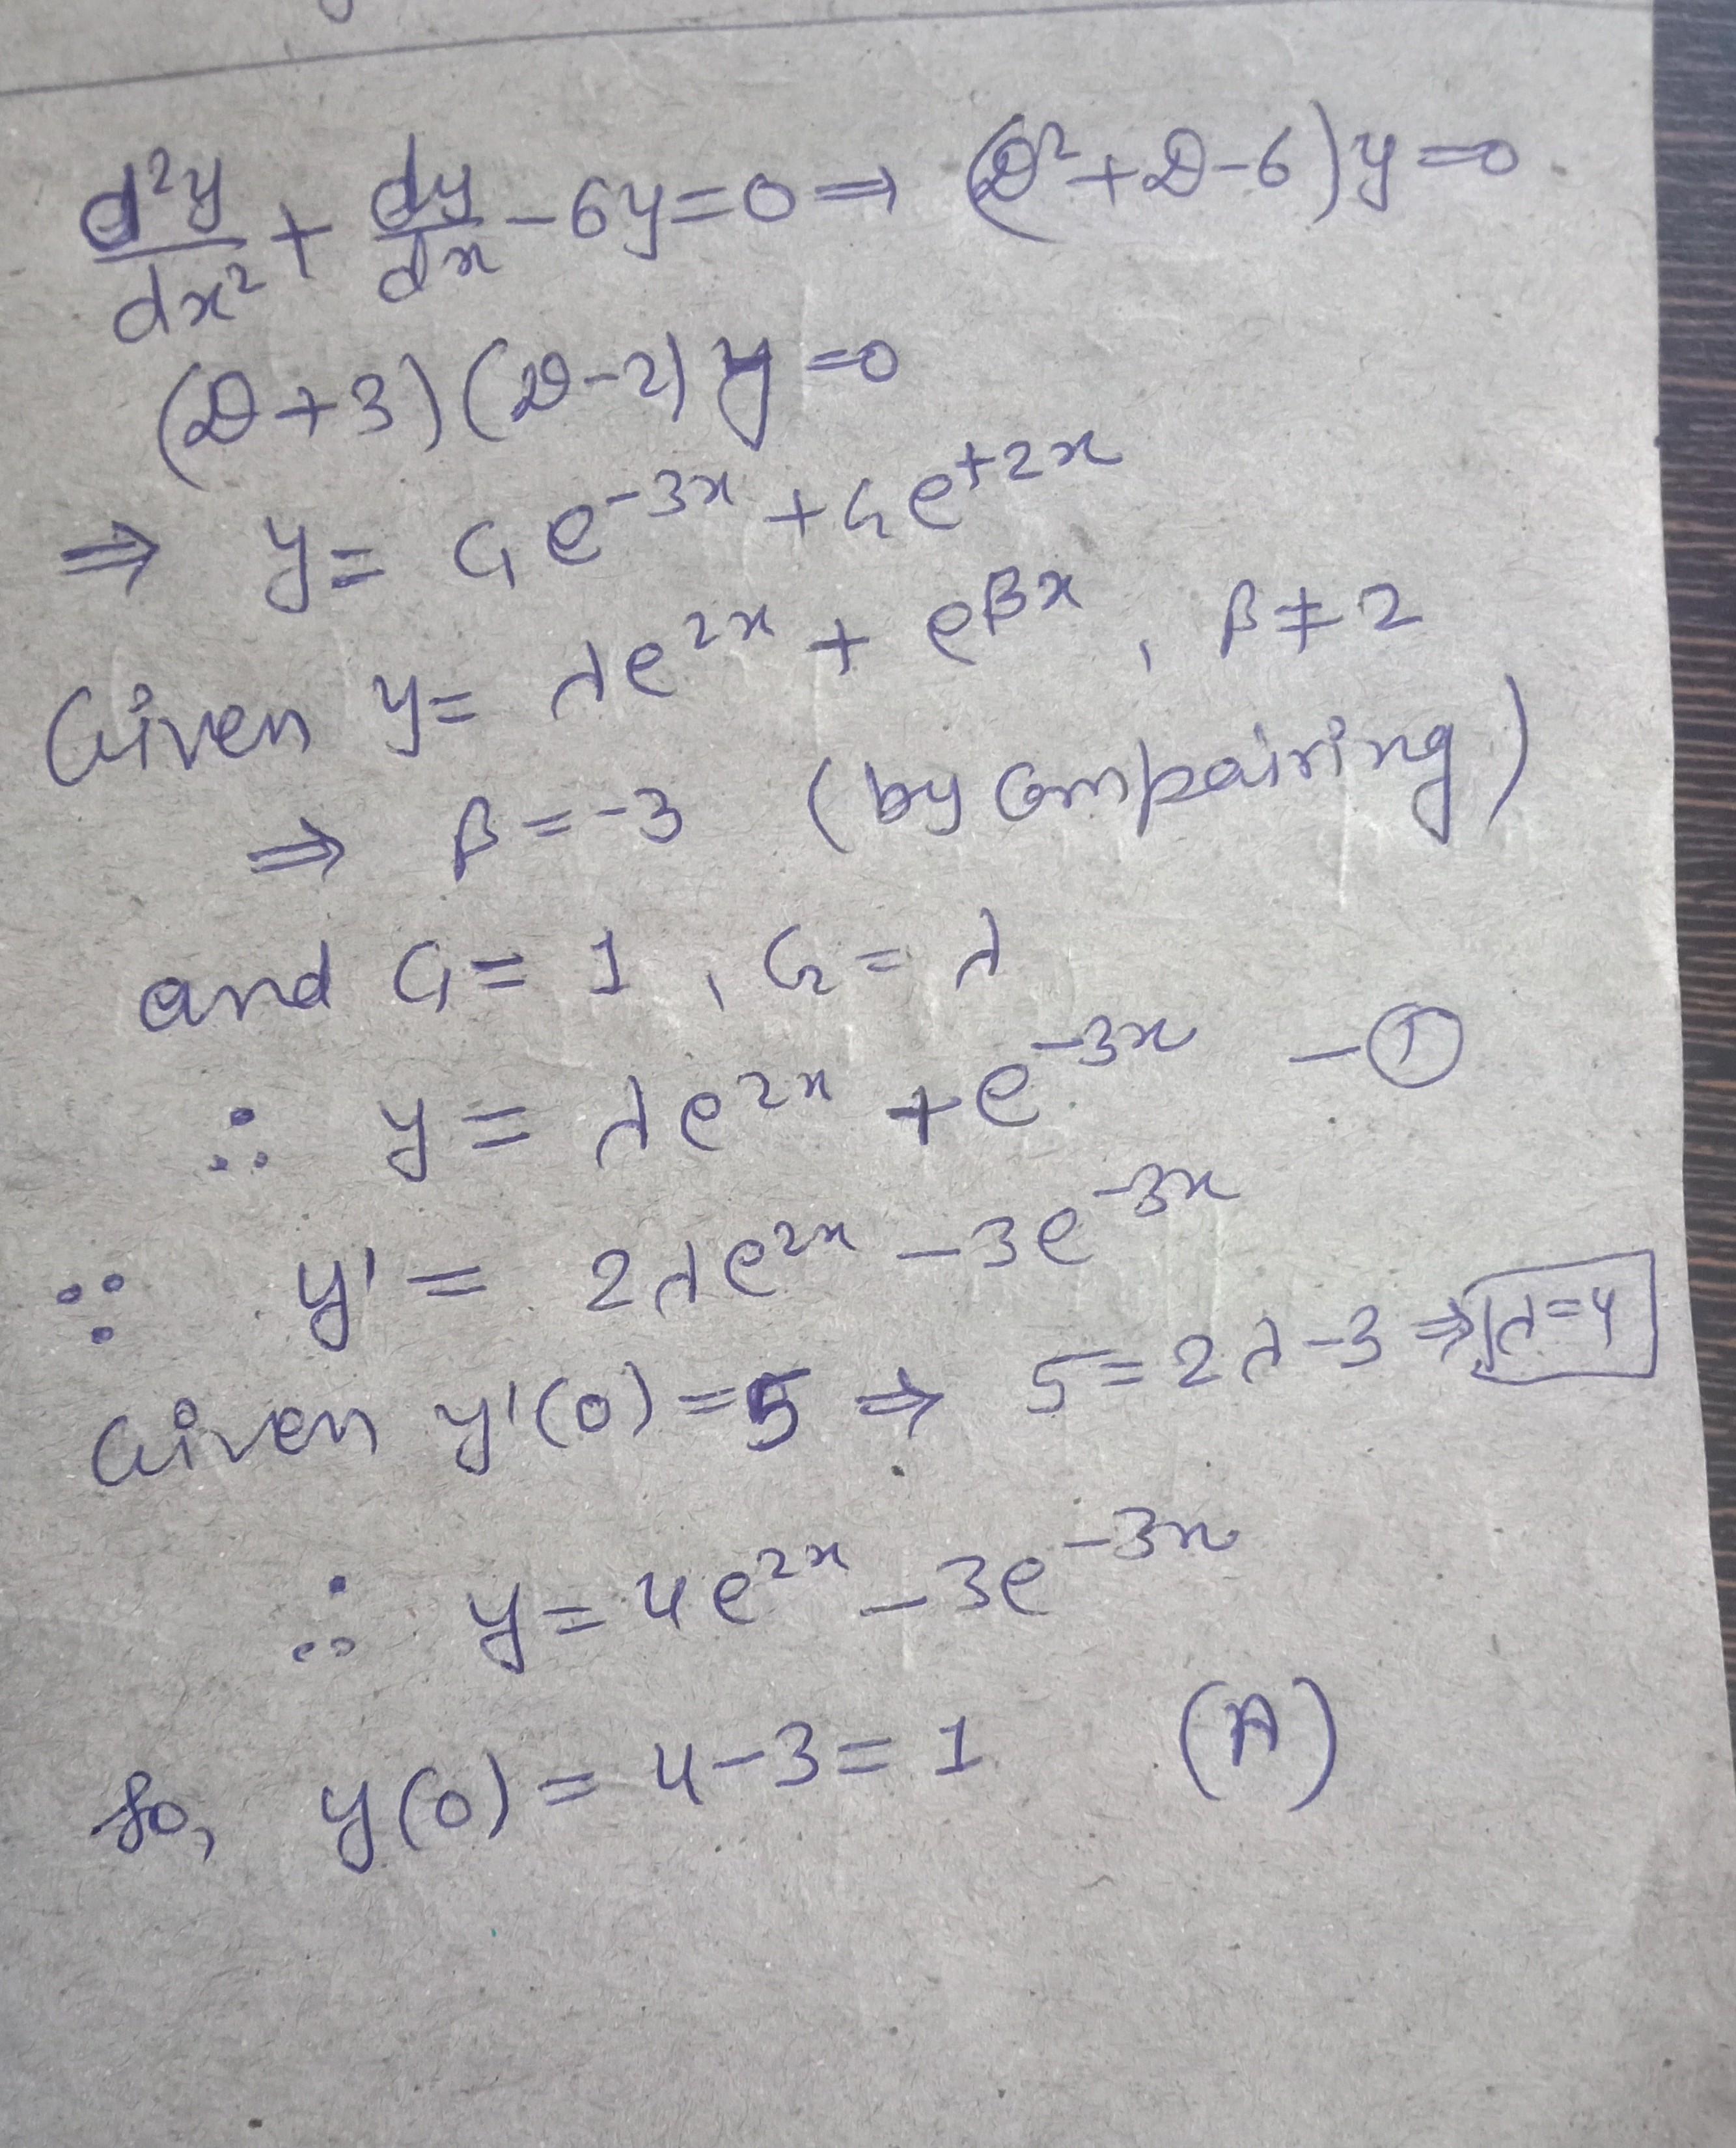 d²y/dx² + dy/dx - 6y = 0 ⇒ (D² + D - 6)y = 0
(D + 3)(D - 2)y = 0
⇒ y = C₁e^(-3x) + C₂e^(+2x)
Given y = λe^(2x) + e^(βx), β ≠ 2
⇒ β = -3 (by compairing)
and C₁ = 1, C₂ = λ
∴ y = λe^(2x) + e^(-3x) - ①
∵ y' = 2λe^(2x) - 3e^(-3x)
Given y'(0) = 5 ⇒ 5 = 2λ - 3 ⇒ λ = 4
∴ y = 4e^(2x) - 3e^(-3x)
So, y(0) = 4 - 3 = 1 (A)